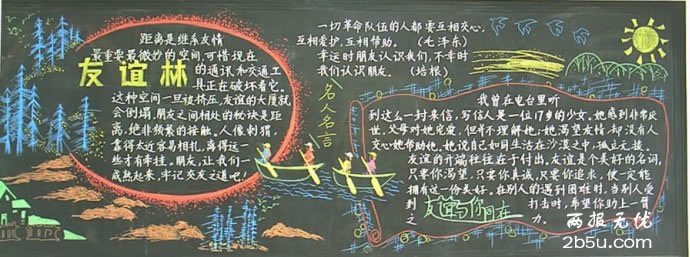 距离是维系友情
最重要最微妙的空间，可惜现在
友谊林
的通讯和交通工
具正在破坏着它。
这种空间一旦被挤压，友谊的大厦就
会倒塌，朋友之间相处的秘诀是距
离，绝非频繁的接触。人像刺猬，
靠得太近容易相扎，离得远一
些才有牵挂。朋友，让我们一
成熟起来，牢记交友之道吧！
名人名言
一切革命队伍的人都要互相关心，
互相爱护，互相帮助。（毛泽东）
幸运时朋友认识我们，不幸时
我们认识朋友。（培根）
我曾在电台里听
到这么一封来信，写信人是一位17岁的少女。她感到非常厌
世，父母对她宠爱，但并不理解她；她渴望友情，却没有人
交心她帮助她。她说自己如同生活在沙漠之中，孤立无援。
友谊的开端往往在于付出，友谊是个美好的名词，
只要你渴望，只要你真诚，只要你追求，便一定能
拥有这一份美好。在别人的遇到困难时，当别人受
到
友谊与你同在
打击时，希望你助上一臂
之
力。
两报无优
2b5u.com